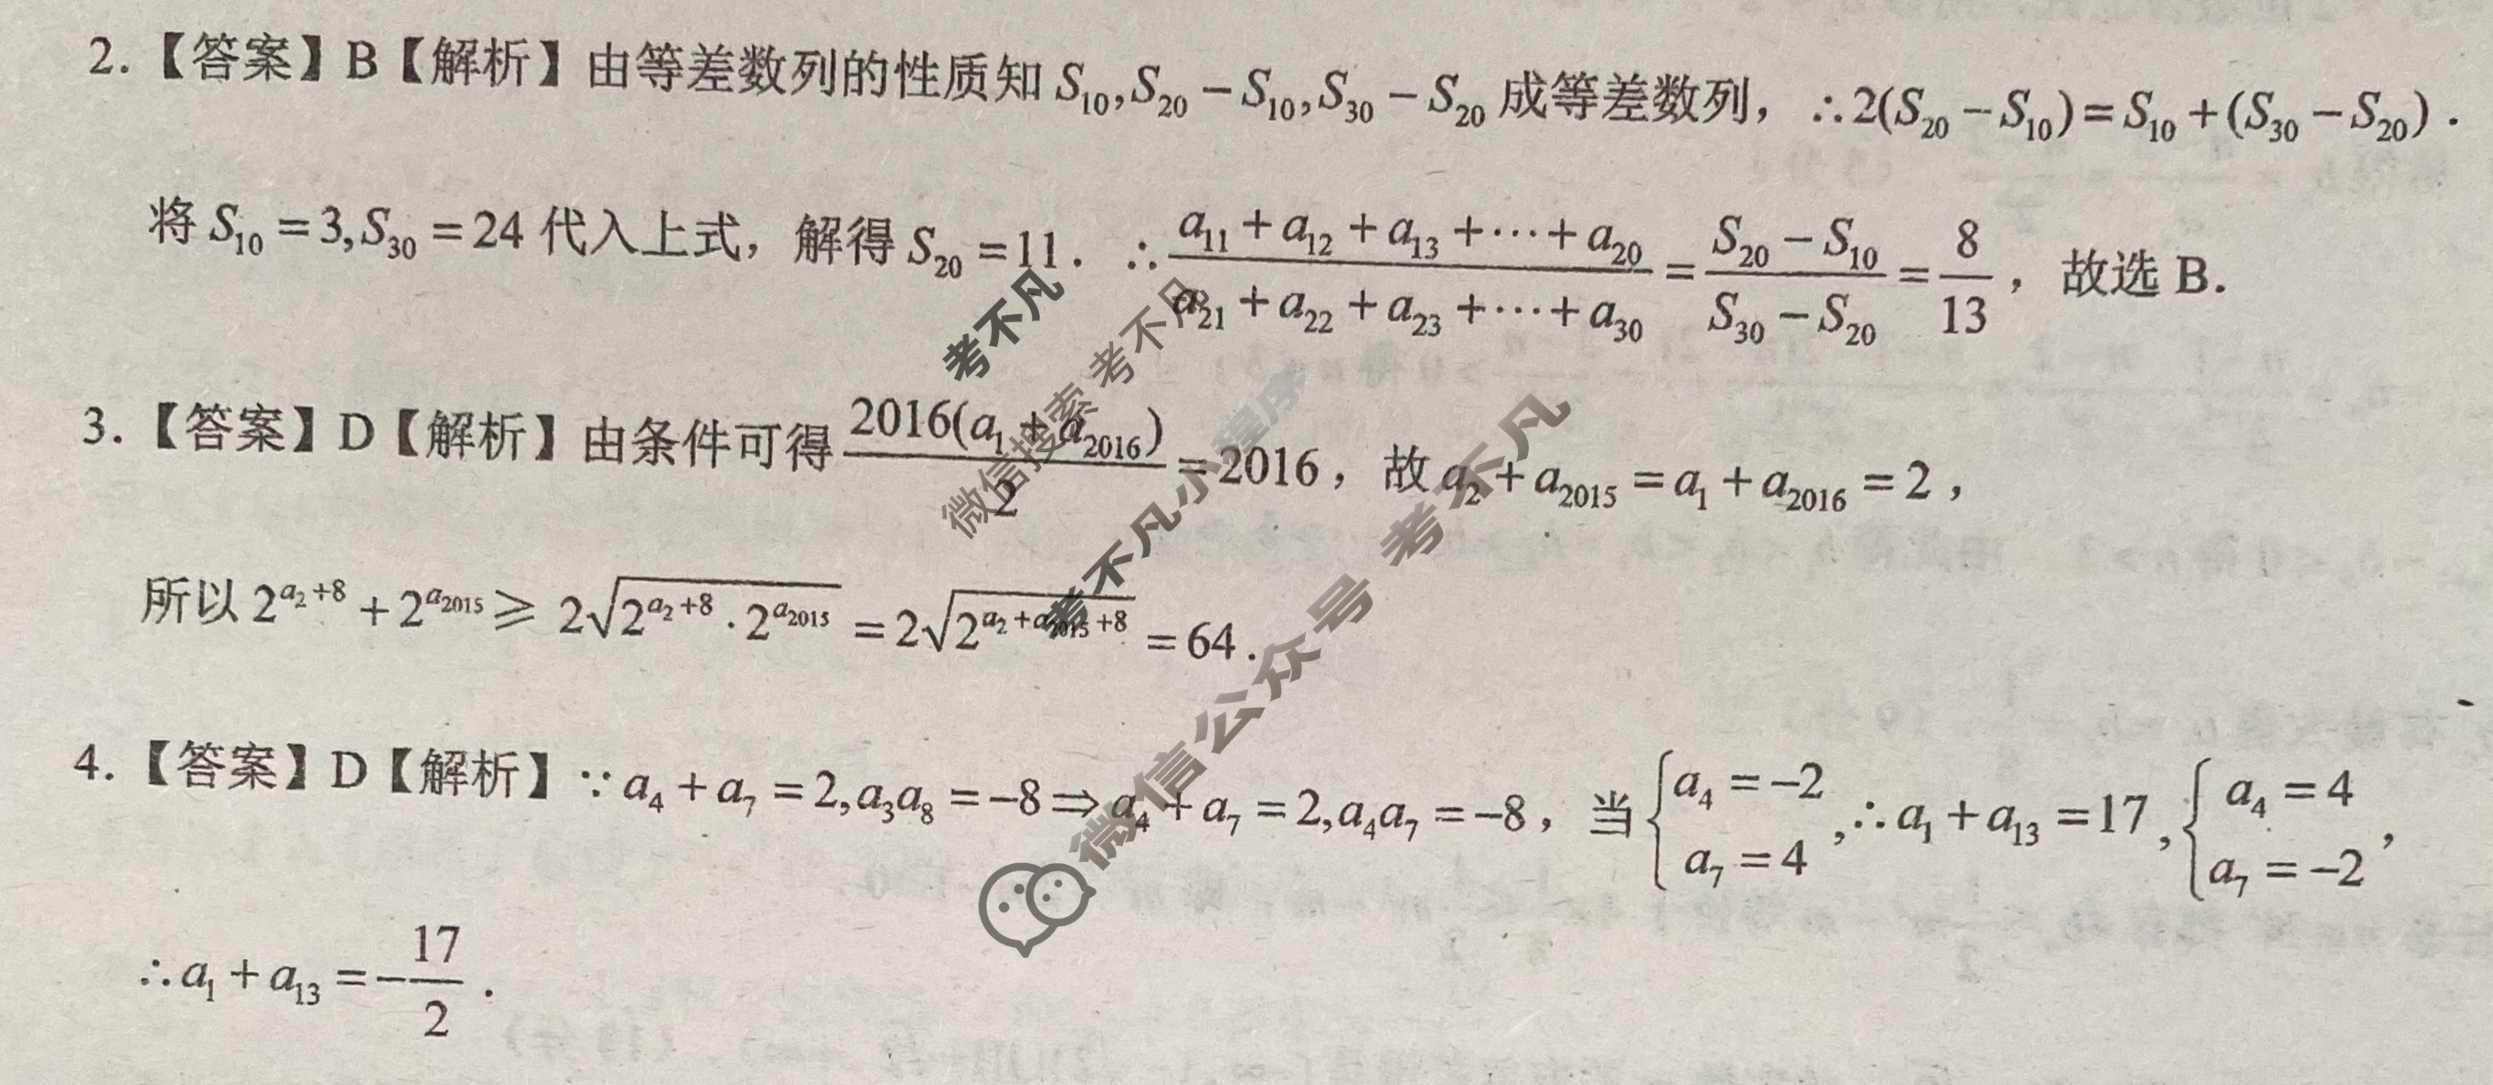 2.【答案】B【解析】由等差数列的性质知 S₁₀,S₂₀－S₁₀,S₃₀－S₂₀ 成等差数列，∴2(S₂₀－S₁₀)=S₁₀+(S₃₀－S₂₀).
将 S₁₀=3,S₃₀=24 代入上式，解得 S₂₀=11. ∴(a₁₁+a₁₂+a₁₃+⋯+a₂₀)/(a₂₁+a₂₂+a₂₃+⋯+a₃₀)=(S₂₀－S₁₀)/(S₃₀－S₂₀)=8/13，故选 B.
3.【答案】D【解析】由条件可得 2016(a₁+a₂₀₁₆)/2=2016，故 a₂+a₂₀₁₅=a₁+a₂₀₁₆=2，
所以 2^(a₂+8)+2^(a₂₀₁₅)≥2√(2^(a₂+8)·2^(a₂₀₁₅))=2√(2^(a₂+a₂₀₁₅+8))=64.
4.【答案】D【解析】∵a₄+a₇=2,a₃a₈=−8⇒a₄+a₇=2,a₄a₇=−8，当{a₄=−2 a₇=4,∴a₁+a₁₃=17,{a₄=4 a₇=−2，
∴a₁+a₁₃=−17/2.
考不凡
微信搜索 考不凡
考不凡小程序
微信公众号 考不凡